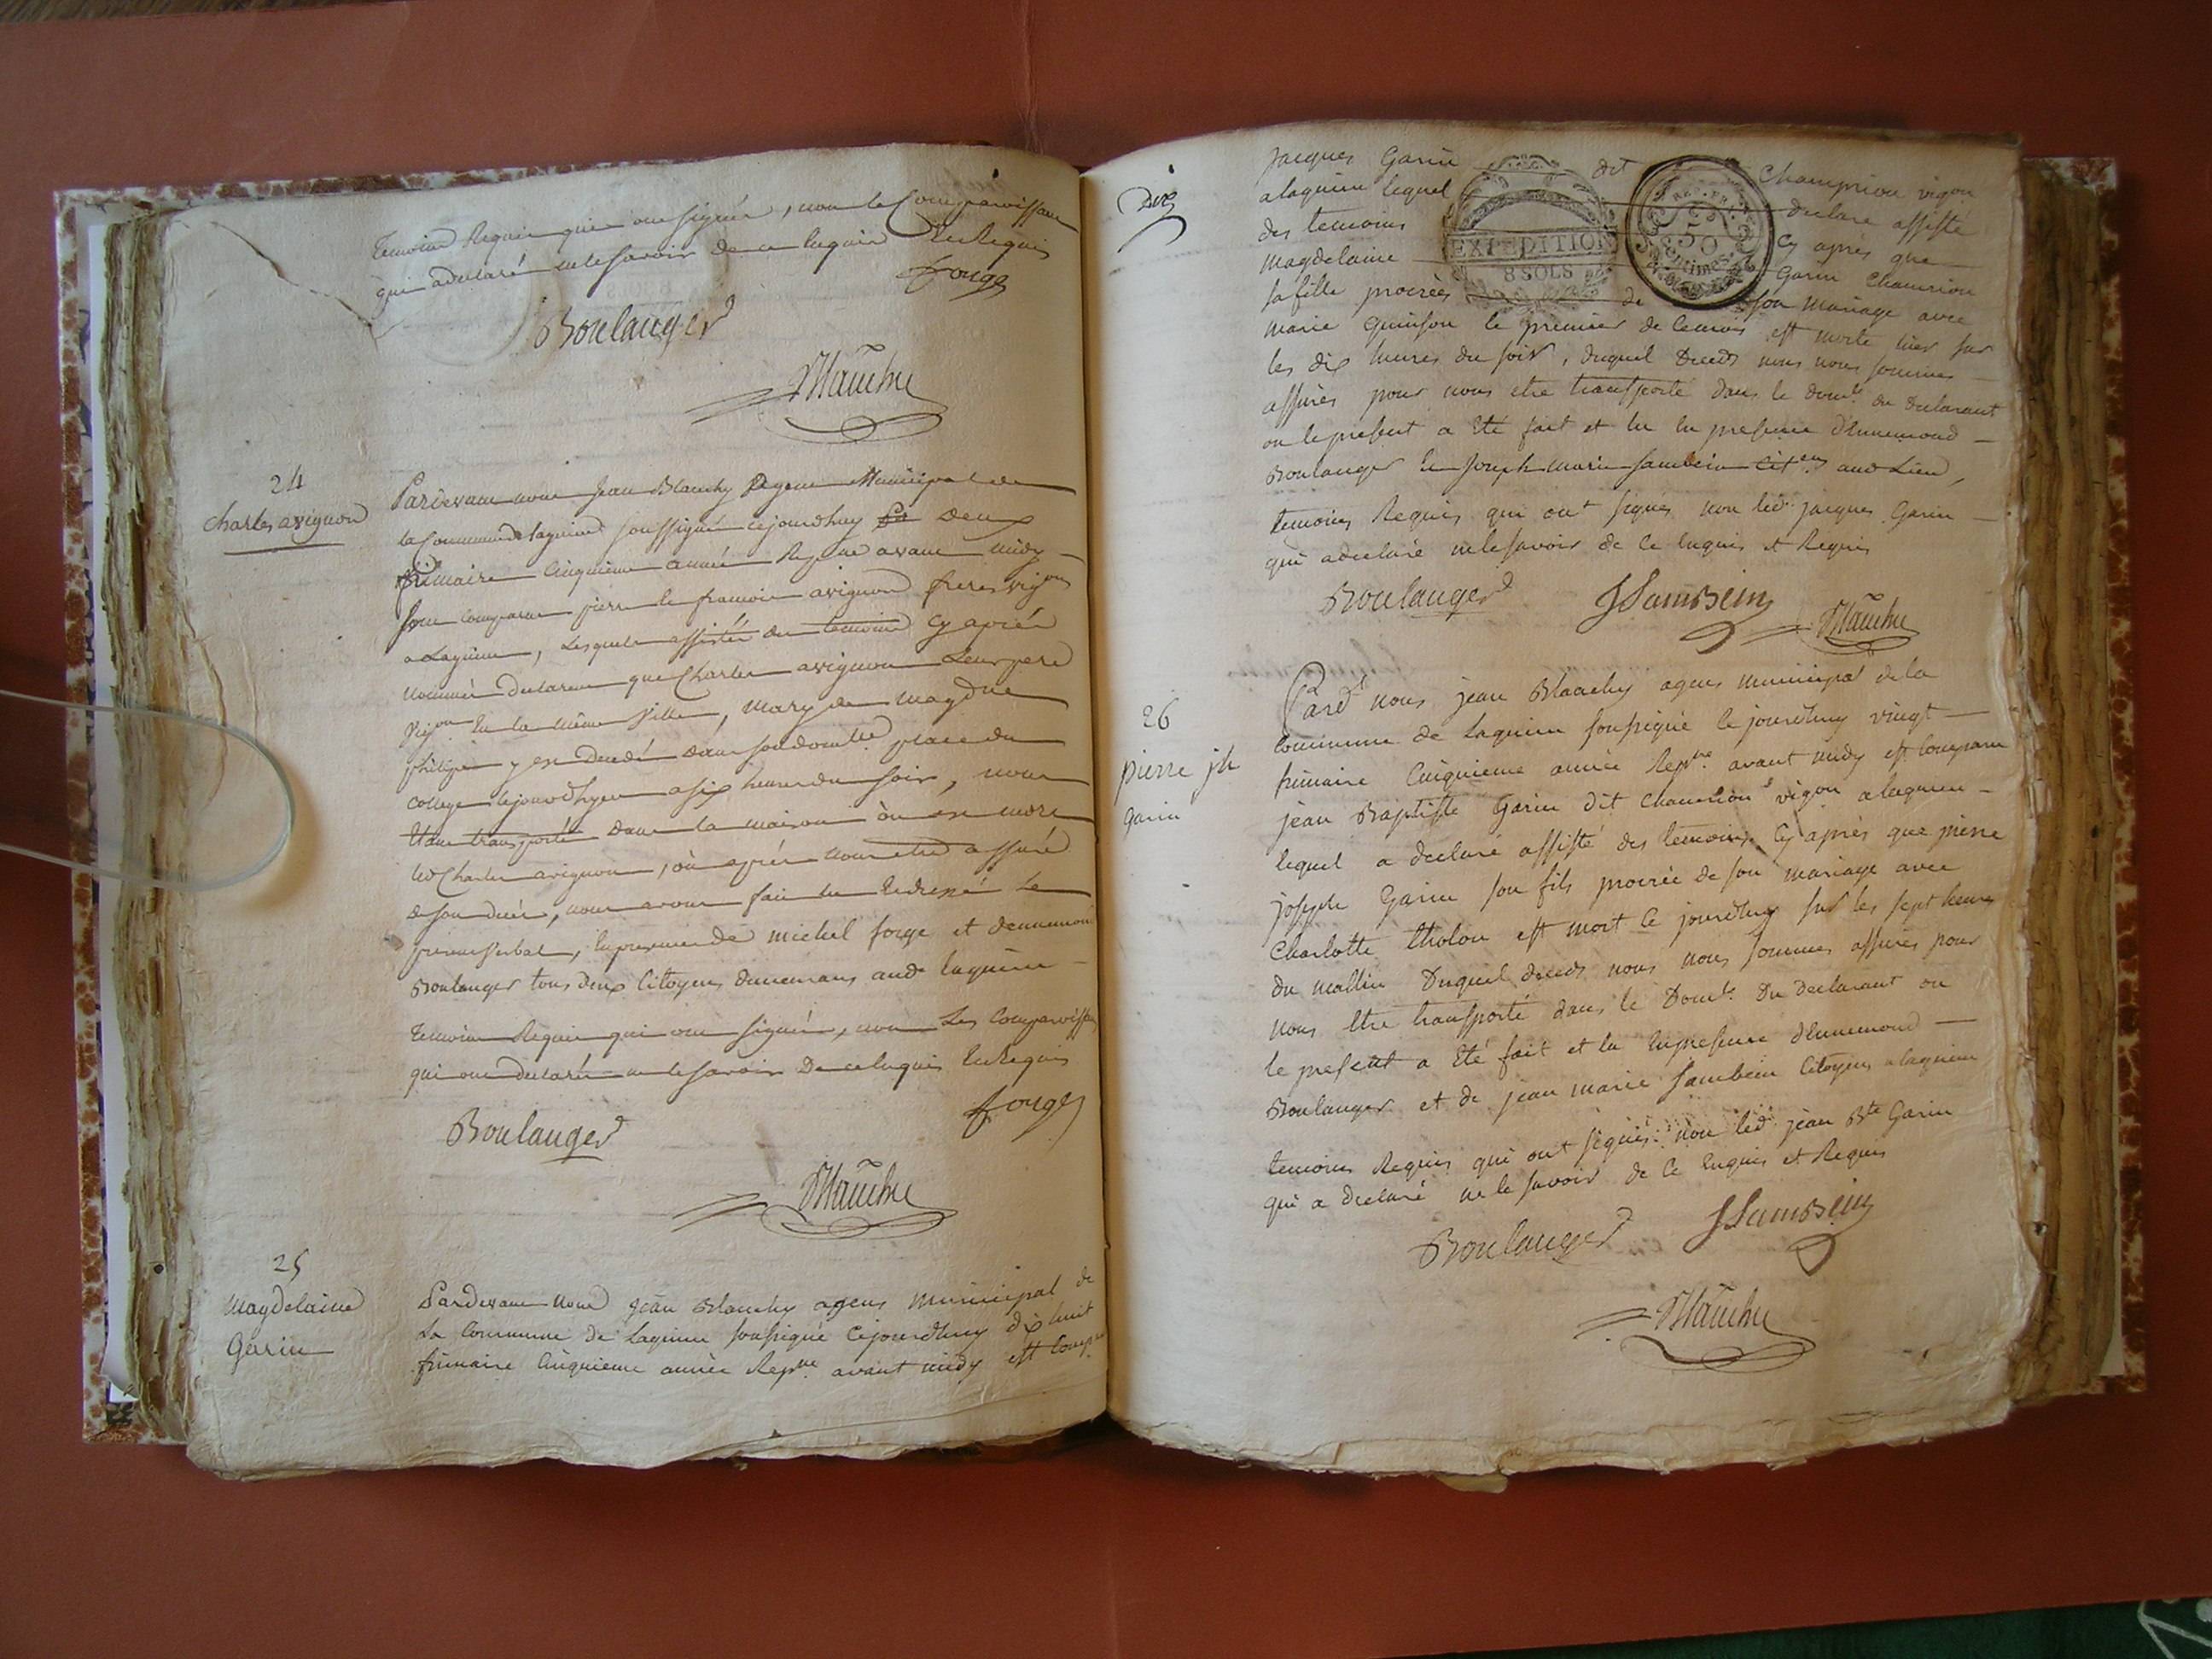 temoins Requis qui ont signés, non le Comparoissant
qui a declaré ne le savoir de ce Enquis et Requis
forge
Boulanger
Blanchy
24
Charles avignon
Pardevant nous Jean Blanchy agent Municipal de
la Commune de lagnieu soussigné cejourdhuy deux
frimaire Cinquieme année Repne avant midy
sont comparus pierre et françois avignon freres vigons
a Lagnieu, Lesquels assistés des temoins Cy après
nommés declarent que Charles avignon Leur pere
Vigon En la même Ville, Mary de Magdne
y est Decedé dans son domlle place du
College a six heures du soir, nous
Etant transporté dans la maison où est mort
led Charles avignon, où après nous etre assuré
de son decès, nous avons fait et dressé Le
verbal, En presence de michel forge et dennemond
Boulanger tous deux Citoyens demeurans aud lagnieu
temoins Requis qui ont signés, non Les Comparoissans
qui ont declaré ne le savoir De ce Enquis et Requis
Boulanger
forge
Blanchy
25
Magdelaine
Garin
Pardevant Nous jean Blanchy agent municipal de
La Commune de Lagnieu soussigné Cejourdhuy dix huit
frimaire Cinquieme année Repne avant midy est Comp
jacques Garin dit Champion vigon
a lagnieu lequel declare assisté
des temoins Cy après que
Magdelaine Garin Champion
sa fille procréé de son mariage avec
marie Guinson le premier de ce mois est morte hier sur
les dix heures du soir, duquel Decès nous nous sommes
assurés pour nous etre transporté dans le domle du Declarant
ou le present a Eté fait et lu En presence d'Ennemond
Boulanger et Joseph Marie Sambein Citens aud Lieu,
temoins Requis qui ont signés non led jacques Garin
qui a declaré ne le savoir de Ce Enquis et Requis
EXPEDITION
8 SOLS
REP. FRA.
50
Centimes
Boulanger
JSambein
Blanchy
26
pierre jh
Garin
Pard nous jean Blanchy agent municipal de la
Commune de Lagnieu soussigné Ce jourdhuy vingt
frimaire Cinquieme année Repne avant midy est Comparu
jean Baptiste Garin dit Champion vigon a lagnieu
lequel a declaré assisté des temoins Cy après que pierre
joseph Garin son fils procréé de son mariage avec
Charlotte tholon est mort Ce jourdhuy sur les sept heures
du mattin Duquel decès nous nous sommes assurés pour
nous etre transporté dans le Domle Du Declarant ou
le present a Eté fait et lu En presence d'Ennemond
Boulanger et de jean marie Sambein Citoyens a lagnieu
temoins Requis qui ont signés non led jean Bte Garin
qui a declaré ne le savoir de Ce Enquis et Requis
Boulanger
JSambein
Blanchy